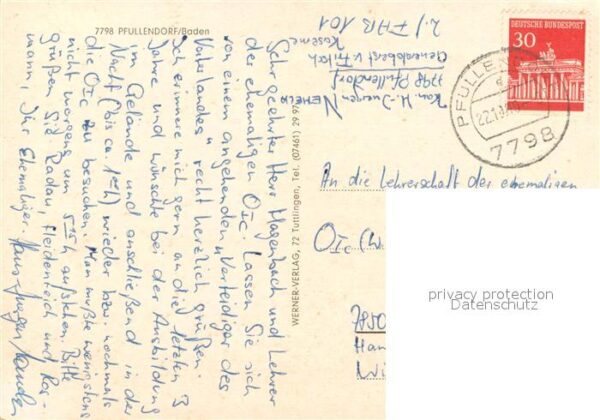 7798 PFULLENDORF/Baden
2./FAB 101
Kaserne
Generaloberst v. Fritsch
7798 Pfullendorf
Kan. H.-Juergen
Sehr geehrter Herr Hagenbach und Lehrer
der ehemaligen OIc. Lassen Sie sich
von einem angehenden "Verteidiger des
Vaterlandes" recht herzlich grüßen.
Ich erinnere mich gern an die letzten 3
Jahre und wünschte bei der Ausbildung
im Gelände und anschließend in der
Nacht (bis ca. 1ºº h) wieder bzw. nochmals
die OIc zu besuchen. Man müßte wenigstens
nicht morgens um 5¹⁵ h aufstehen. Bitte
grüßen Sie Radau, Heidenreich und Kor-
mann, Ihr Ehemaliger. Hans-Juergen
WERNER-VERLAG, 72 Tuttlingen, Tel. (07461) 29 96
DEUTSCHE BUNDESPOST
30
PFULLENDORF
7798
An die Lehrerschaft der ehemaligen
OIc (W
Wi
privacy protection
Datenschutz